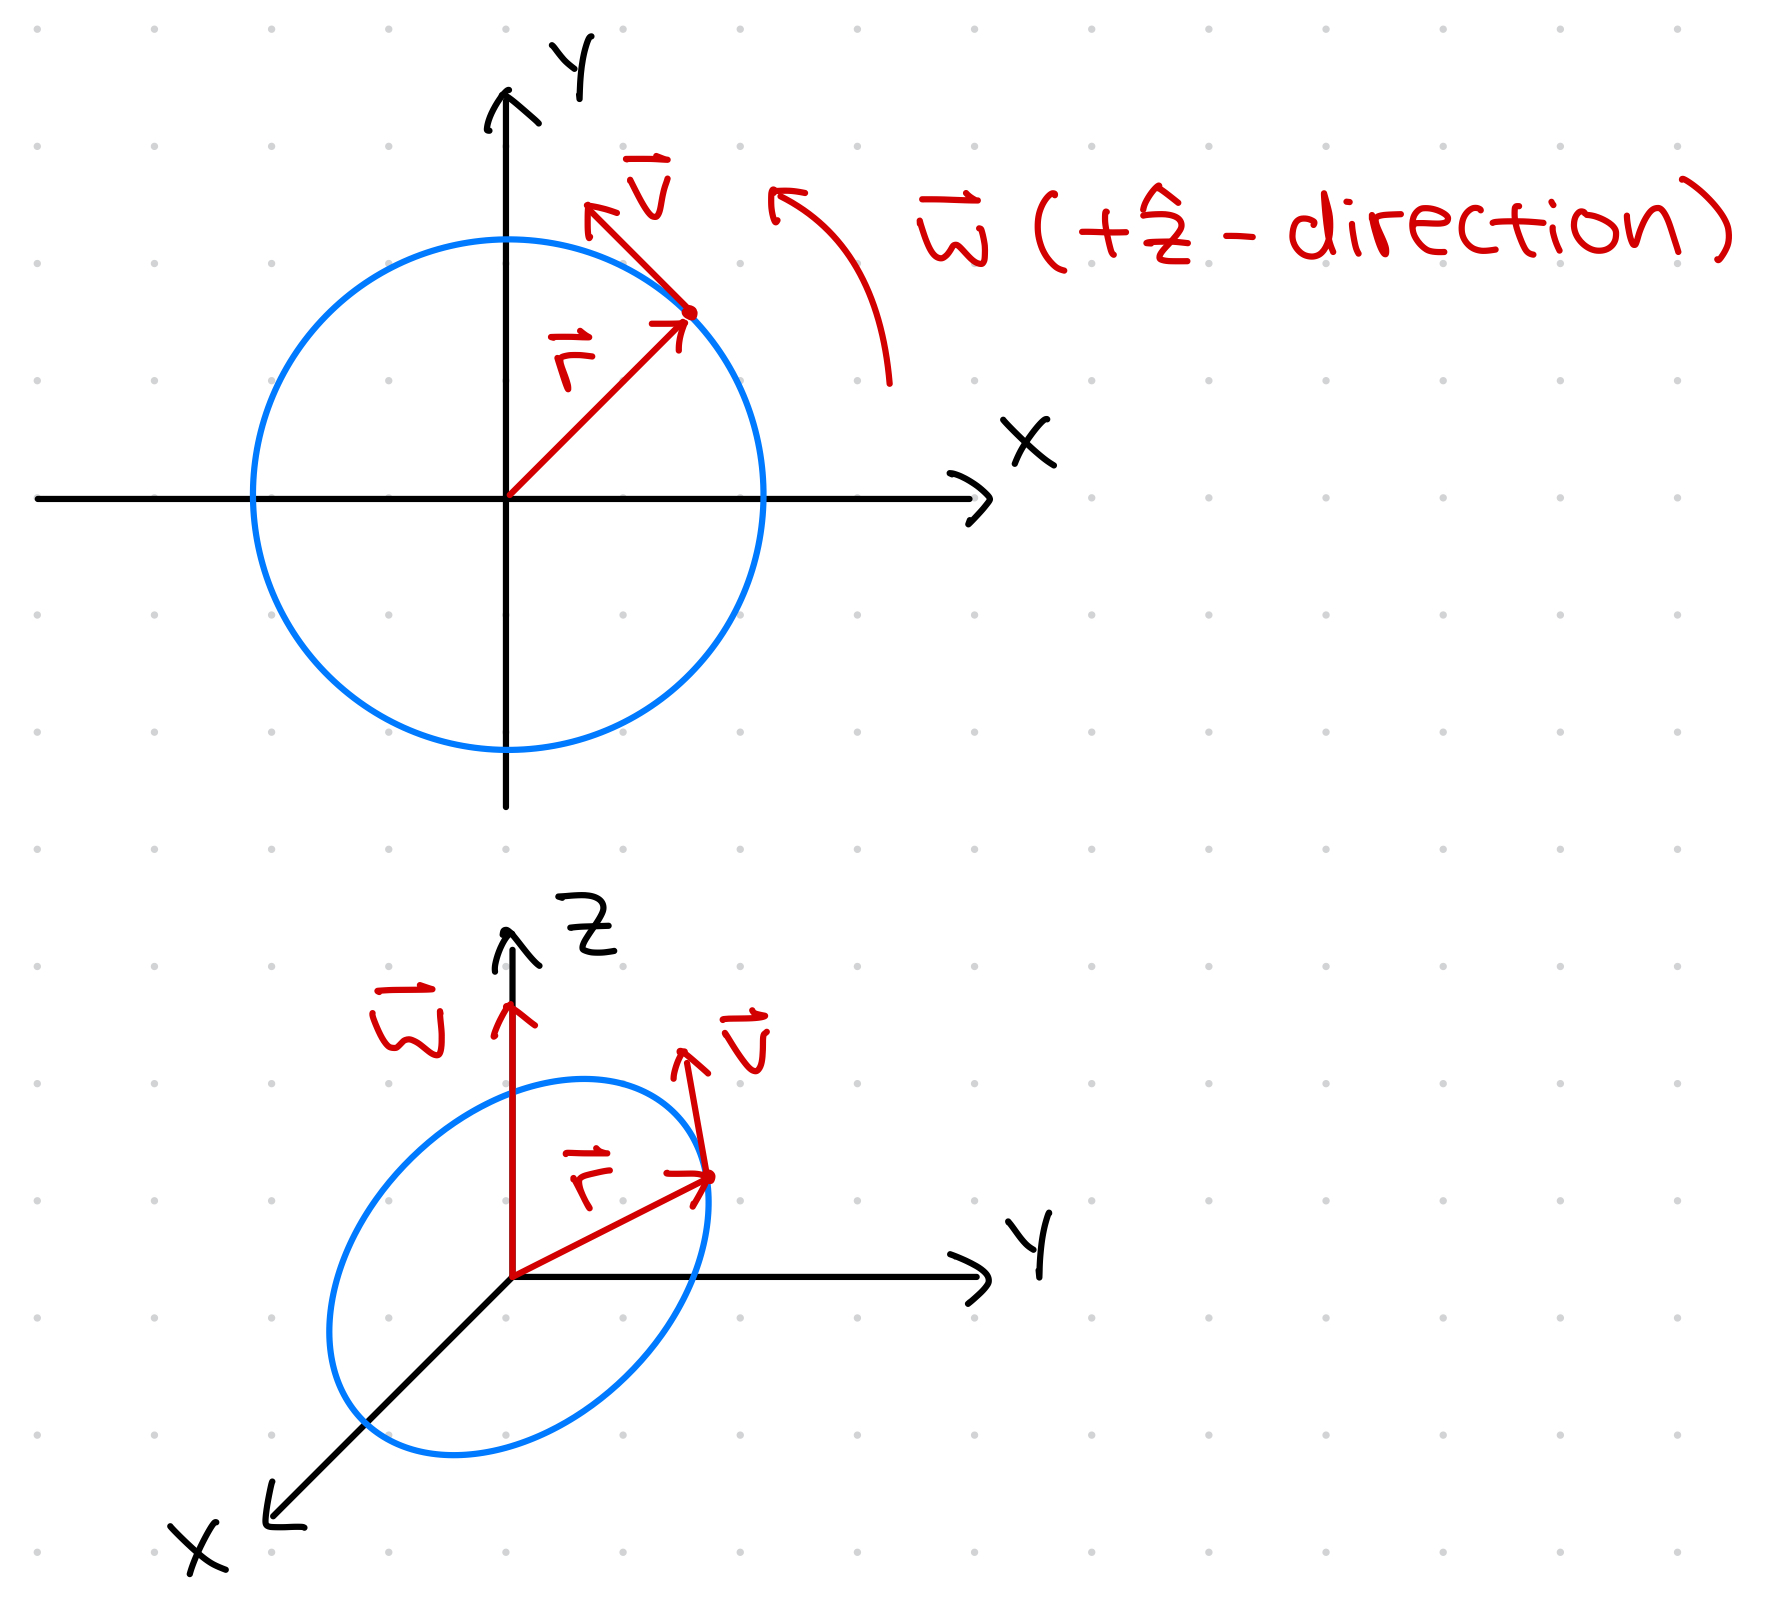 Y
v⃗
w⃗ (+ẑ - direction)
r⃗
X
Z
w⃗
v⃗
r⃗
Y
X